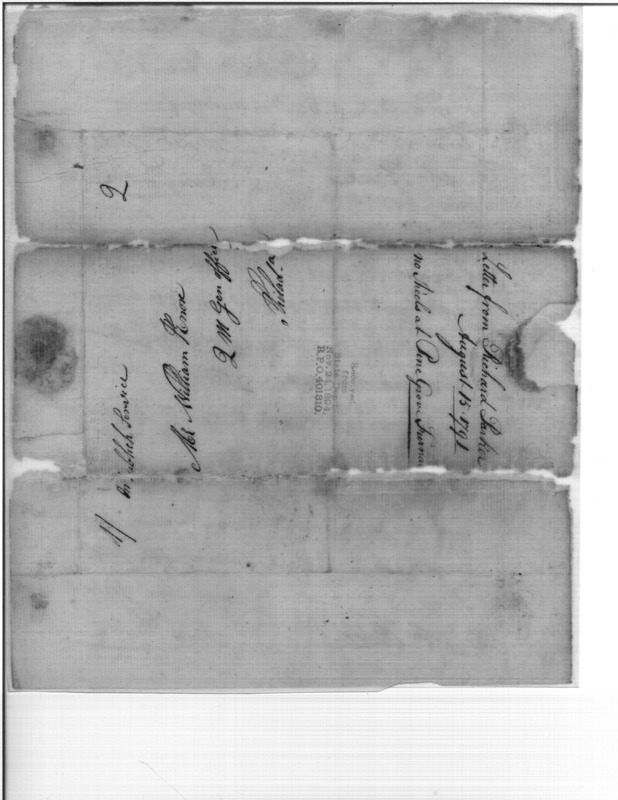 Letter from Richard Parker
August. 15. 1791
no Shels at Pine Grove Furnace
Received
from
State Dept.
Nov. 24, 1894.
R.P.O. 401810.
Philad.a
Q M Gen office
Mr William Knox
Service
1/
2